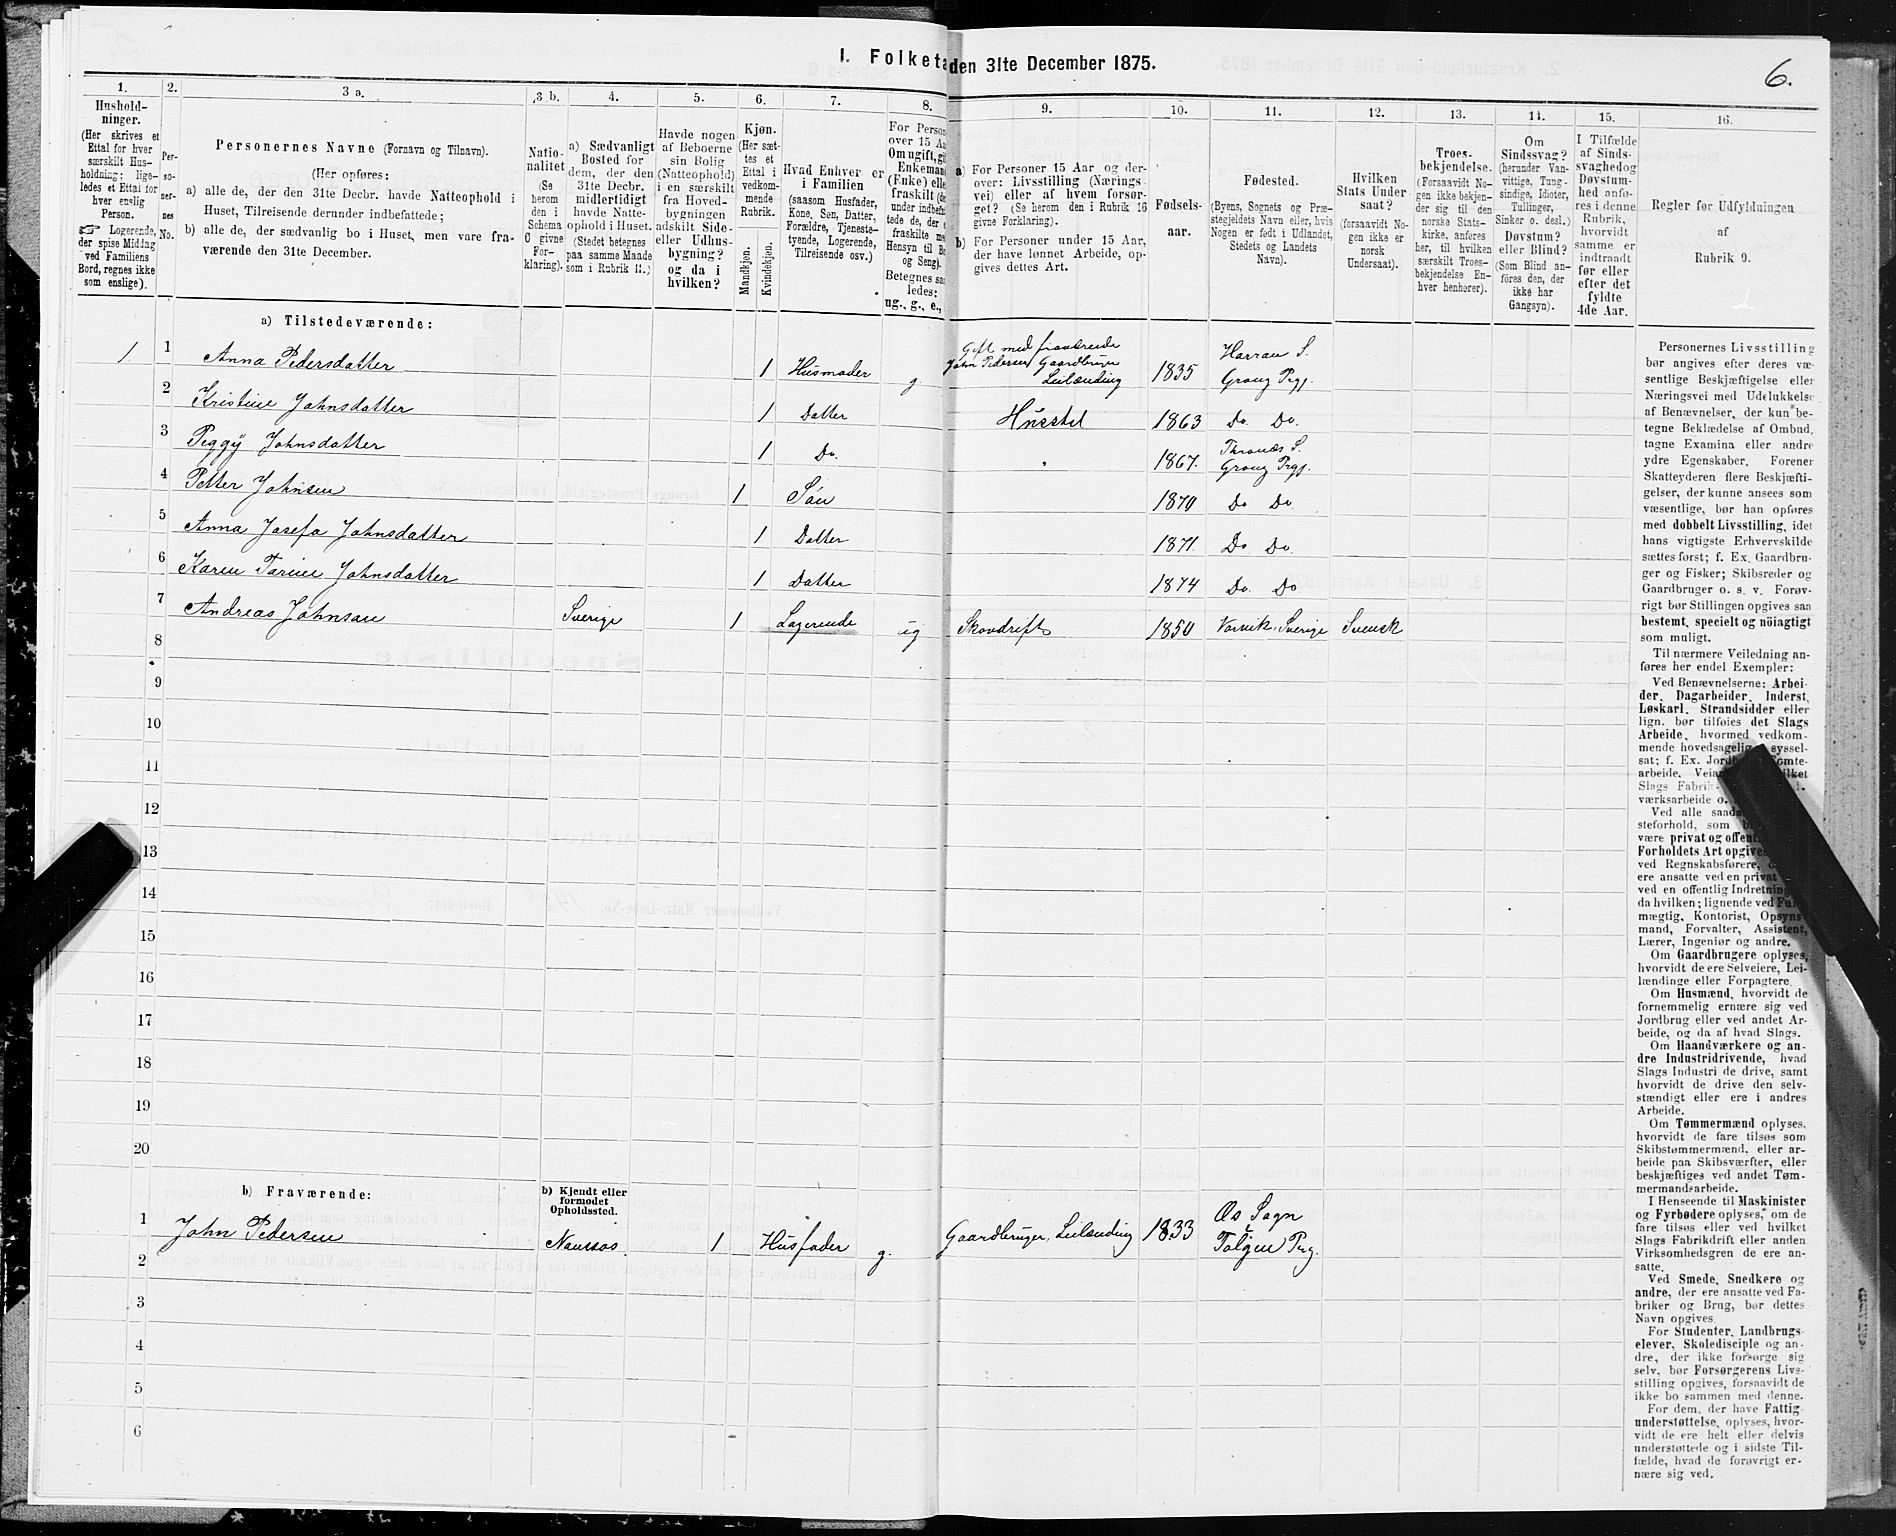 I. Folketæ den 31te December 1875.
6.
1.
Hushold-
ninger.
(Her skrives et
Ettal for hver
særskilt Hus-
holdning; lige-
ledes et Ettal for
hver enslig
Person.
☞ Logerende,
der spise Middag
ved Familiens
Bord, regnes ikke
som enslige).
2.
Per-
so-
ner-
nes
No.
3 a.
Personernes Navne (Fornavn og Tilnavn).
(Her opføres:
a) alle de, der den 31te Decbr. havde Natteophold i
Huset, Tilreisende derunder indbefattede;
b) alle de, der sædvanlig bo i Huset, men vare fra-
værende den 31te December.
3 b.
Natio-
nalitet
(Se
herom
den i
Schema
C givne
For-
klaring).
4.
a) Sædvanligt
Bosted for
dem, der den
31te Decbr.
midlertidigt
havde Natte-
ophold i Huset.
(Stedet betegnes
paa samme Maade
som i Rubrik 11.)
5.
Havde nogen
af Beboerne
sin Bolig
(Natteophold)
i en særskilt
fra Hoved-
bygningen
adskilt Side-
eller Udhus-
bygning?
og da i
hvilken?
6.
Kjøn.
(Her sæt-
tes et
Ettal i
vedkom-
mende
Rubrik.
Mandkjøn.
Kvindekjøn.
7.
Hvad Enhver er
i Familien
(saasom Husfader,
Kone, Søn, Datter,
Forældre, Tjeneste-
tyende, Logerende,
Tilreisende osv.)
8.
For Person
over 15 Aa
Om ugift, gif
Enkemand
(Enke) elle
fraskilt
under indbefat-
tede de, der e
fraskilte me
Hensyn til Bo
og Seng).
Betegnes saa
ledes:
ug., g., e.,
9.
a) For Personer 15 Aar og der-
over: Livsstilling (Nærings-
vei) eller af hvem forsør-
get? (Se herom den i Rubrik 16
givne Forklaring).
b) For Personer under 15 Aar,
der have lønnet Arbeide, op-
gives dettes Art.
10.
Fødsels-
aar.
11.
Fødested.
(Byens, Sognets og Præ-
stegjeldets Navn eller, hvis
Nogen er født i Udlandet,
Stedets og Landets
Navn).
12.
Hvilken
Stats Under-
saat?
(forsaavidt No-
gen ikke er
norsk
Undersaat).
13.
Troes-
bekjendelse.
(Forsaavidt No-
gen ikke bekjen-
der sig til den
norske Stats-
kirke, anføres
her, til hvilken
særskilt Troes-
bekjendelse En-
hver henhorer).
14.
Om
Sindssvag?
(herunder Van-
vittige, Tung-
sindige, Idioter,
Tullinger,
Sinker o. desl.)
Døvstum?
eller Blind?
(Som Blind an-
føres den, der
ikke har
Gangsyn).
15.
I Tilfælde
af Sinds-
svaghedog
Døvstum-
hed anfø-
res i denne
Rubrik,
hvorvidt
samme er
indtraadt
før eller
efter det
fyldte
4de Aar.
16.
Regler for Udfyldningen
af
Rubrik 9.
a) Tilstedeværende:
1 1 Anna Pedersdatter 1 Husmoder g Gift med fraværende John Pedersen Gaardbruger Leilænding 1835 Harran S. Grong Prgj.
2 Kristine Johnsdatter 1 Datter Husstel 1863 Do. Do.
3 Peggy Johnsdatter 1 Do. " 1867. Thronæs S. Grong Prgj.
4 Petter Johnsen 1 Søn 1870 Do Do.
5 Anna Josefa Johnsdatter 1 Datter 1871. Do Do.
6 Karen Tarine Johnsdatter 1 Datter 1874 Do. Do.
7 Andreas Johnsen Sverige 1 Logerende ug Skovdrift 1850 Vorvik. Sverige Svensk
8
9
10
11
12
13
14
15
16
17
18
19
20
b) Fraværende:
b) Kjendt eller
formodet
Opholdssted.
1 John Pedersen Namsos. 1 Husfader g. Gaardbruger, Leilænding 1833 Os Sogn Tolgen Prg.
2
3
4
5
6
Personernes Livsstilling
bør angives efter deres væ-
sentlige Beskjæftigelse eller
Næringsvei med Udelukkelse
af Benævnelser, der kun be-
tegne Beklædelse af Ombud,
tagne Examina eller andre
ydre Egenskaber. Forener
Skatteyderen flere Beskjæfti-
gelser, der kunne ansees som
væsentlige, bør han opføres
med dobbelt Livsstilling, idet
hans vigtigste Erhvervskilde
sættes først; f. Ex. Gaardbru-
ger og Fisker; Skibsreder og
Gaardbruger o. s. v. Forøv-
rigt bør Stillingen opgives saa
bestemt, specielt og nöiagtigt
som muligt.
Til nærmere Veiledning an-
føres her endel Exempler:
Ved Benævnelserne: Arbei-
der, Dagarbeider, Inderst,
Løskarl, Strandsidder eller
lign. bør tilføies det Slags
Arbeide, hvormed vedkom-
mende hovedsagelig sysselsat; f. Ex. Jord omte-
arbeide, Vei ilket
Slags Fabrik-
værksarbeide o.
Ved alle saad
steforhold, som
være privat og offent
Forholdets Art opgives
ved Regnskabsførere,
ere ansatte ved en privat
ved en offentlig Indretning
da hvilken; lignende ved Fuld-
mægtig, Kontorist, Opsyns-
mand, Forvalter, Assistent,
Lærer, Ingeniør og andre.
Om Gaardbrugere oplyses,
hvorvidt de ere Selveiere, Lei-
lændinge eller Forpagtere.
Om Husmænd, hvorvidt de
fornemmelig ernære sig ved
Jordbrug eller ved andet Ar-
beide, og da af hvad Slags.
Om Haandværkere og an-
dre Industridrivende, hvad
Slags Industri de drive, samt
hvorvidt de drive den selv-
stændigt eller ere i andres
Arbeide.
Om Tømmermænd oplyses,
hvorvidt de fare tilsøs som
Skibstømmermænd, eller ar-
beide paa Skibsværfter, eller
beskjæftiges ved andet Tøm-
mermandsarbeide.
I Henseende til Maskinister
og Fyrbødere oplyses, om de
fare tilsøs eller ved hvilket
Slags Fabrikdrift eller anden
Virksomhedsgren de ere an-
satte.
Ved Smede, Snedkere og
andre, der ere ansatte ved Fa-
briker og Brug, bør dettes
Navn opgives.
For Studenter, Landbrugs-
elever, Skoledisciple og an-
dre, der ikke forsørge sig
selv, bør Forsørgerens Livs-
stilling opgives, forsaavidt de
ikke bo sammen med denne.
For dem, der have Fattig-
understøttelse, oplyses, hvor-
vidt de ere helt eller delvis
understøttede og i sidste Til-
fælde, hvad de forøvrigt er-
nære sig ved.